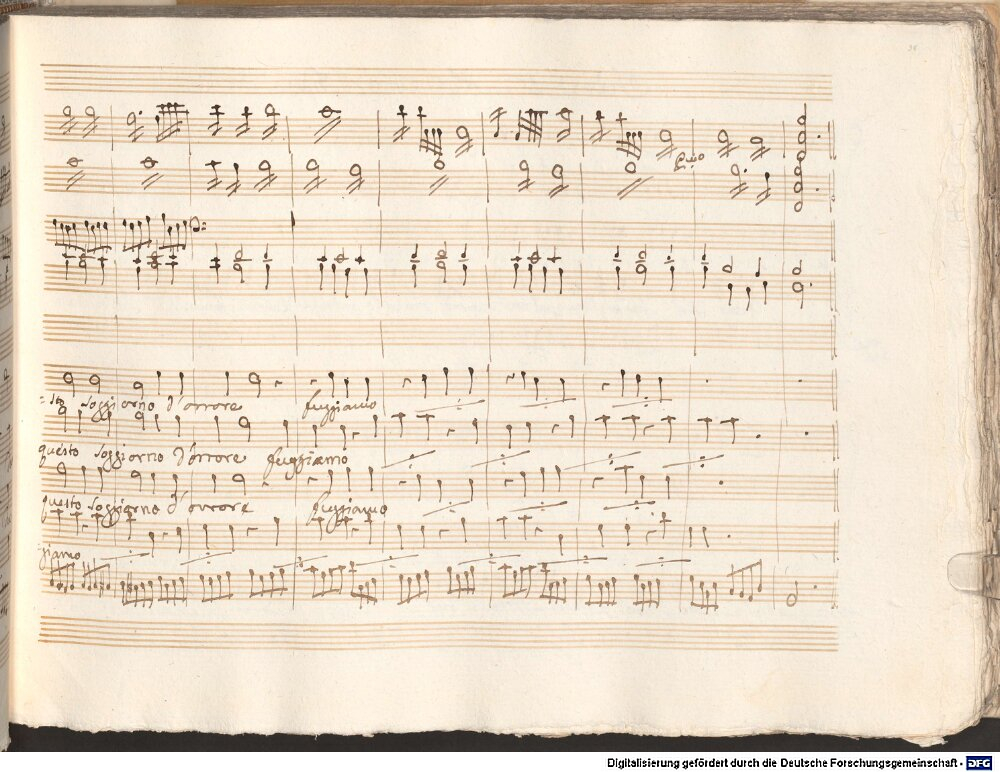 =sto soggiorno d'orrore fuggiamo
questo soggiorno d'orrore fuggiamo
questo soggiorno d'orrore fuggiamo
giamo
Digitalisierung gefördert durch die Deutsche Forschungsgemeinschaft - DFG